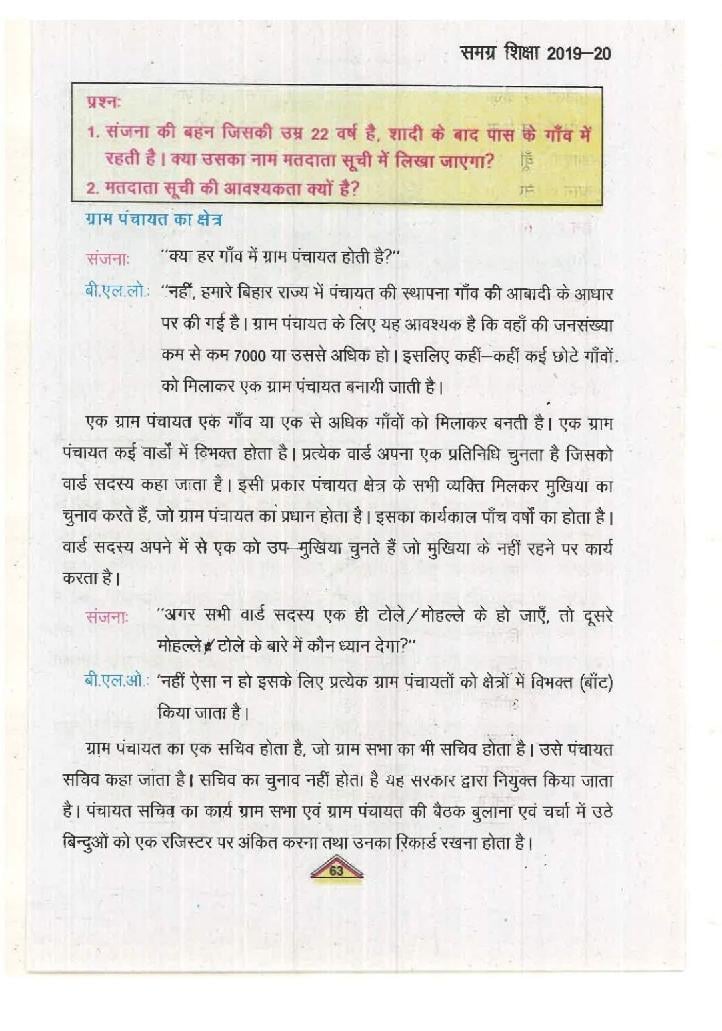 समग्र शिक्षा 2019–20
प्रश्नः
1. संजना की बहन जिसकी उम्र 22 वर्ष है, शादी के बाद पास के गाँव में
रहती है। क्या उसका नाम मतदाता सूची में लिखा जाएगा?
2. मतदाता सूची की आवश्यकता क्यों है?
ग्राम पंचायत का क्षेत्र
संजनाः "क्या हर गाँव में ग्राम पंचायत होती है?"
बी.एल.लो.: "नहीं, हमारे बिहार राज्य में पंचायत की स्थापना गाँव की आबादी के आधार
पर की गई है। ग्राम पंचायत के लिए यह आवश्यक है कि वहाँ की जनसंख्या
कम से कम 7000 या उससे अधिक हो। इसलिए कहीं–कहीं कई छोटे गाँवों
को मिलाकर एक ग्राम पंचायत बनायी जाती है।
एक ग्राम पंचायत एक गाँव या एक से अधिक गाँवों को मिलाकर बनती है। एक ग्राम
पंचायत कई वार्डों में विभक्त होता है। प्रत्येक वार्ड अपना एक प्रतिनिधि चुनता है जिसको
वार्ड सदस्य कहा जाता है। इसी प्रकार पंचायत क्षेत्र के सभी व्यक्ति मिलकर मुखिया का
चुनाव करते हैं, जो ग्राम पंचायत का प्रधान होता है। इसका कार्यकाल पाँच वर्षों का होता है।
वार्ड सदस्य अपने में से एक को उप–मुखिया चुनते हैं जो मुखिया के नहीं रहने पर कार्य
करता है।
संजनाः "अगर सभी वार्ड सदस्य एक ही टोले/मोहल्ले के हो जाएँ, तो दूसरे
मोहल्ले/टोले के बारे में कौन ध्यान देगा?"
बी.एल.ओ.: 'नहीं ऐसा न हो इसके लिए प्रत्येक ग्राम पंचायतों को क्षेत्रों में विभक्त (बाँट)
किया जाता है।
ग्राम पंचायत का एक सचिव होता है, जो ग्राम सभा का भी सचिव होता है। उसे पंचायत
सचिव कहा जाता है। सचिव का चुनाव नहीं होता है यह सरकार द्वारा नियुक्त किया जाता
है। पंचायत सचिव का कार्य ग्राम सभा एवं ग्राम पंचायत की बैठक बुलाना एवं चर्चा में उठे
बिन्दुओं को एक रजिस्टर पर अंकित करना तथा उनका रिकार्ड रखना होता है।
63